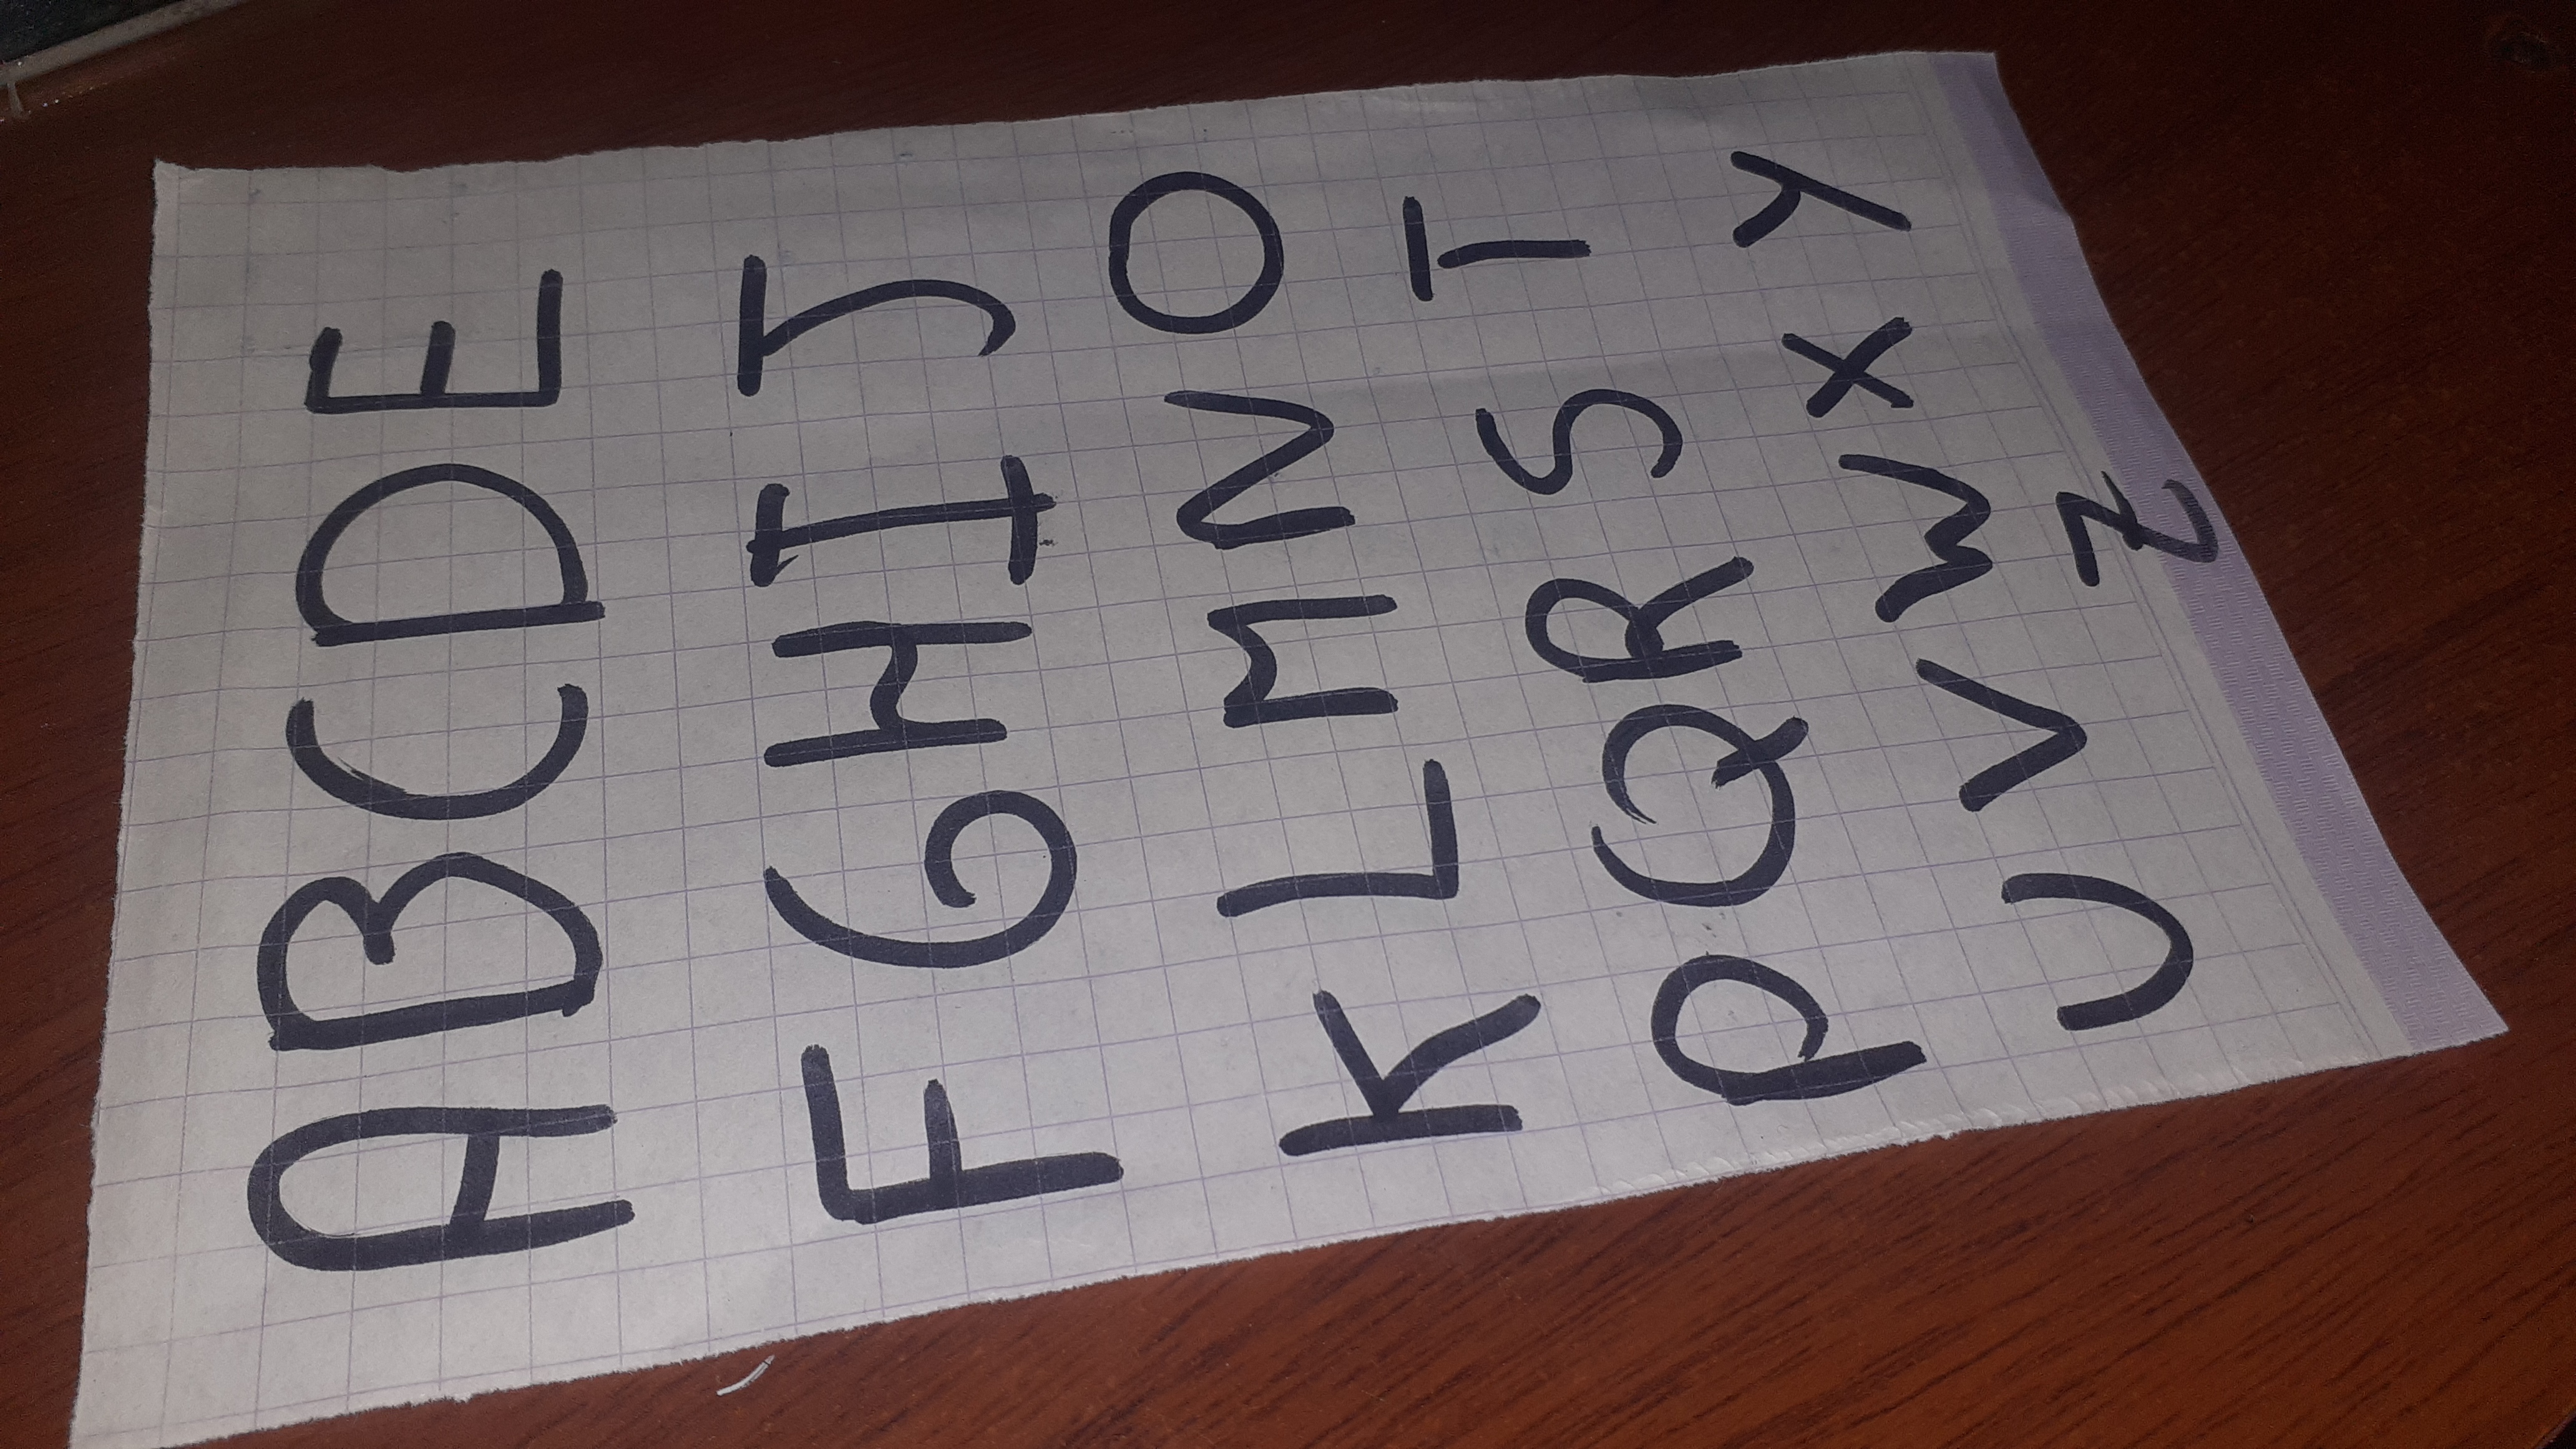 ABCDE
FGHIJ
KLMNO
PQRST
UVWXY
Z